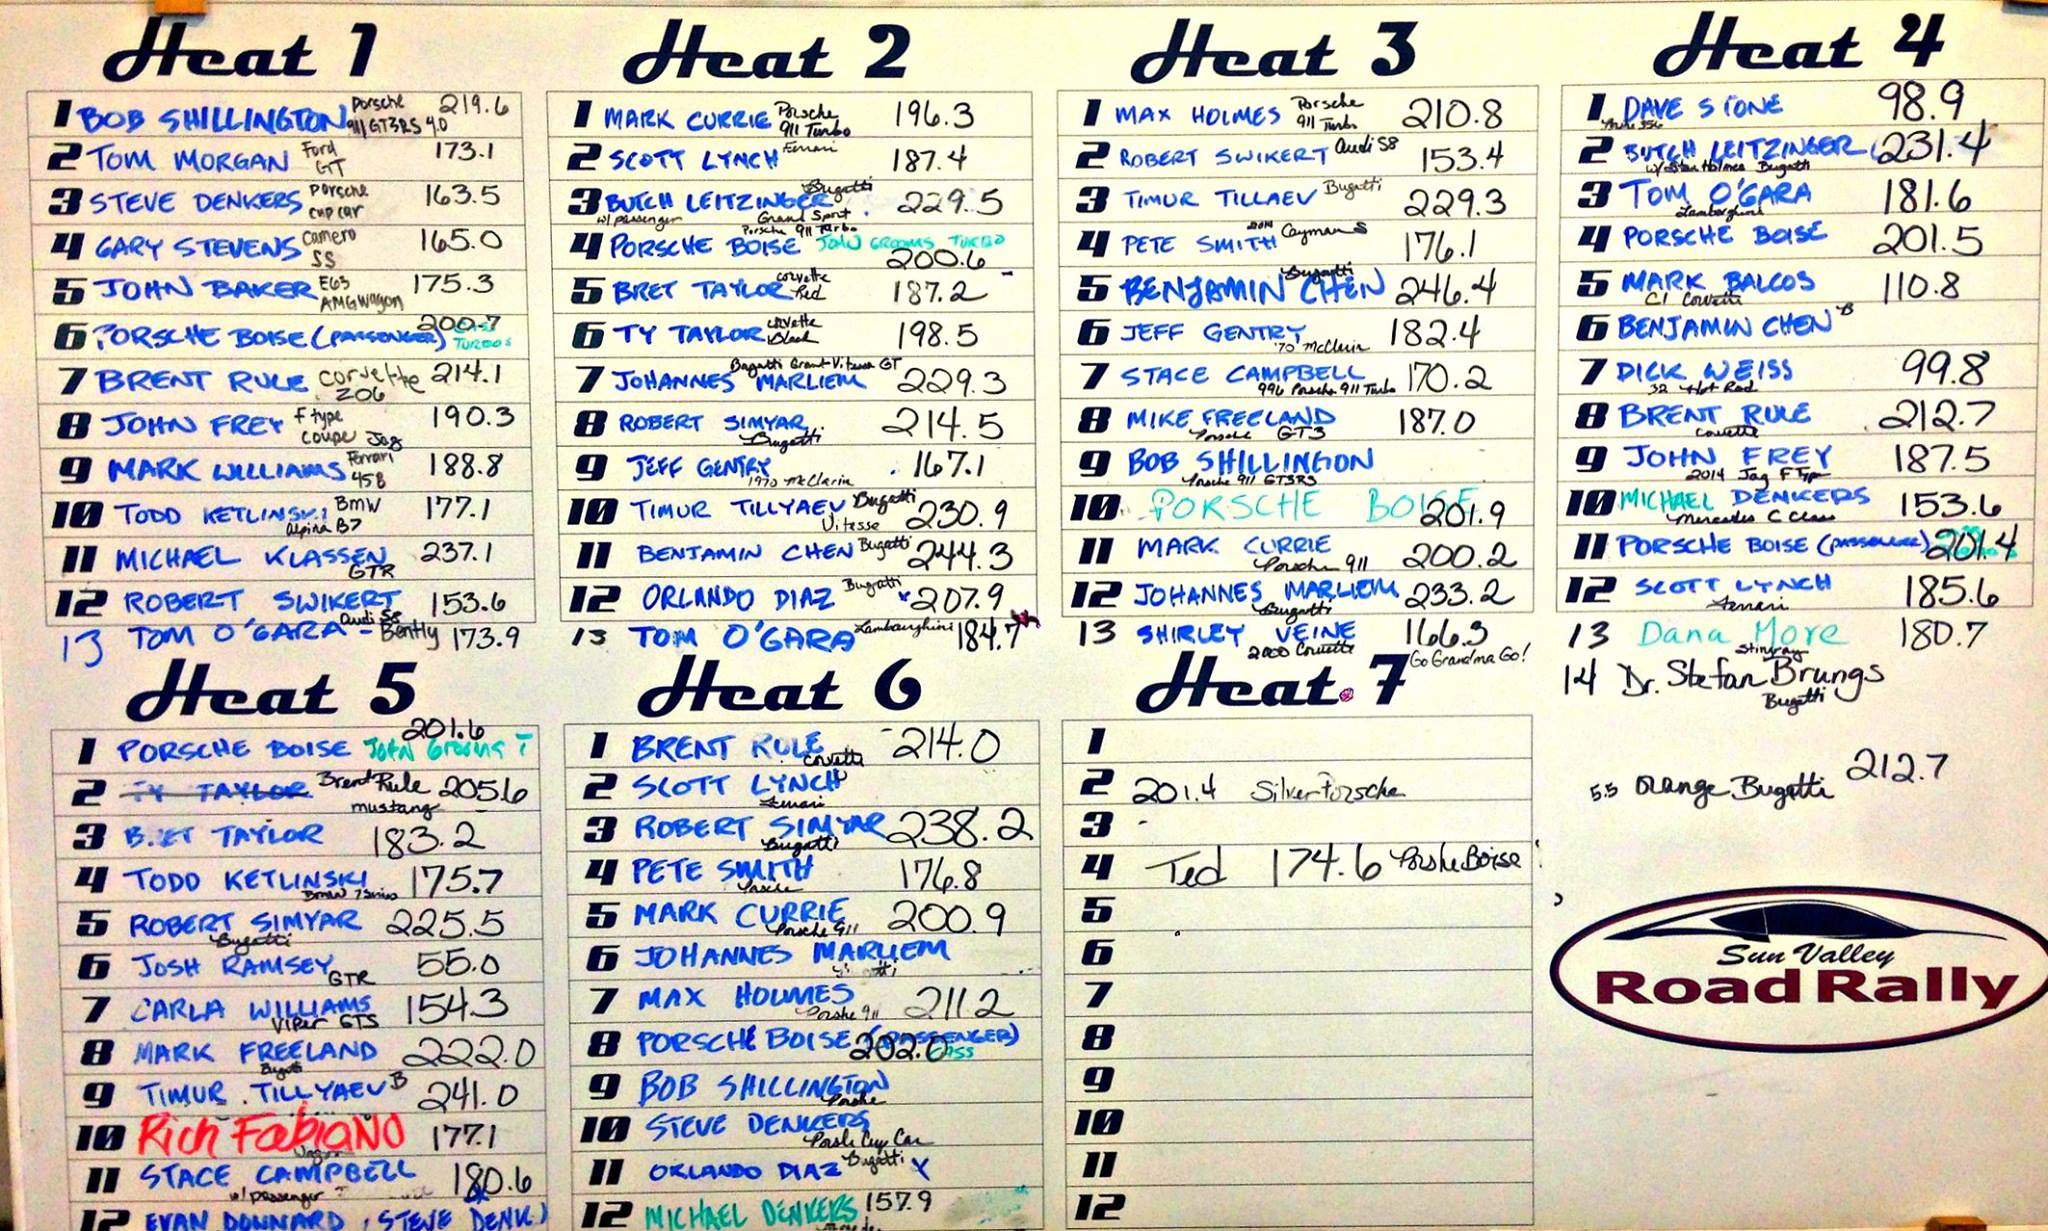 Heat 1
1 BOB SHILLINGTON Porsche 911 GT3RS 4.0 219.6
2 TOM MORGAN Ford GT 173.1
3 STEVE DENKERS Porsche cup car 163.5
4 GARY STEVENS Camero SS 165.0
5 JOHN BAKER E63 AMG Wagon 175.3
6 PORSCHE BOISE (PASSENGER) 200.7 TURBO S
7 BRENT RULE Corvette Z06 214.1
8 JOHN FREY F type coupe Jag 190.3
9 MARK WILLIAMS Ferrari 458 188.8
10 TODD KETLINSKI BMW Alpina B7 177.1
11 MICHAEL KLASSEN GTR 237.1
12 ROBERT SWIKERT Audi S8 153.6
13 TOM O'GARA - Bently 173.9
Heat 2
1 MARK CURRIE Porsche 911 Turbo 196.3
2 SCOTT LYNCH Ferrari 187.4
3 BUTCH LEITZINGER w/passenger Bugatti Grand Sport 229.5
4 PORSCHE BOISE Porsche 911 Turbo JOHN GROOMS TURBO 200.6
5 BRET TAYLOR corvette Red 187.2
6 TY TAYLOR corvette black 198.5
7 JOHANNES MARLIEM Bugatti Grant Vitesse GT 229.3
8 ROBERT SIMYAR Bugatti 214.5
9 JEFF GENTRY 1970 McClarin 167.1
10 TIMUR TILLYAEV Bugatti Vitesse 230.9
11 BENJAMIN CHEN Bugatti 244.3
12 ORLANDO DIAZ Bugatti x 207.9
13 TOM O'GARA Lamborghini 184.7
Heat 3
1 MAX HOLMES Porsche 911 Turbo 210.8
2 ROBERT SWIKERT Audi S8 153.4
3 TIMUR TILLAEV Bugatti 229.3
4 PETE SMITH 2014 Cayman S 176.1
5 BENJAMIN CHEN Bugatti 246.4
6 JEFF GENTRY '70 McClarin 182.4
7 STACE CAMPBELL 996 Porsche 911 Turbo 170.2
8 MIKE FREELAND Porsche GT3 187.0
9 BOB SHILLINGON Porsche 911 GT3RS
10 PORSCHE BOISE 201.9
11 MARK CURRIE Porsche 911 200.2
12 JOHANNES MARLIEM Bugatti 233.2
13 SHIRLEY VEINE 2000 Corvette 166.3
Go Grandma Go!
Heat 4
1 DAVE STONE Porsche 356 98.9
2 BUTCH LEITZINGER w/Stan Holmes Bugatti 231.4
3 TOM O'GARA Lamborghini 181.6
4 PORSCHE BOISE 201.5
5 MARK BALCOS C1 Corvette 110.8
6 BENJAMIN CHEN B
7 DICK WEISS 32 Hot Rod 99.8
8 BRENT RULE corvette 212.7
9 JOHN FREY 2014 Jag F Typ 187.5
10 MICHAEL DENKERS Mercedes C Class 153.6
11 PORSCHE BOISE (PASSENGER) 201.4
12 SCOTT LYNCH Ferrari 185.6
13 Dana More Stingray 180.7
14 Dr. Stefan Brungs Bugatti
5.5 Orange Bugatti 212.7
Heat 5
1 PORSCHE BOISE John Grooms T 201.6
2 TY TAYLOR Brent Rule mustang 205.6
3 BRET TAYLOR 183.2
4 TODD KETLINSKI BMW 7 Series 175.7
5 ROBERT SIMYAR Bugatti 225.5
6 JOSH RAMSEY GTR 55.0
7 CARLA WILLIAMS Viper GTS 154.3
8 MARK FREELAND Bugatti 222.0
9 TIMUR TILLYAEV B 241.0
10 Rich Fabiano Wagon 177.1
11 STACE CAMPBELL w/passenger 180.6
12 EVAN DONNARD (STEVE DENK.)
Heat 6
1 BRENT RULE corvette 214.0
2 SCOTT LYNCH Ferrari
3 ROBERT SIMYAR Bugatti 238.2
4 PETE SMITH Porsche 176.8
5 MARK CURRIE Porsche 911 200.9
6 JOHANNES MARLIEM
7 MAX HOLMES Porshe 911 211.2
8 PORSCHE BOISE (PASSENGER) 202.0
9 BOB SHILLINGTON Porshe
10 STEVE DENKERS Porsh Cup Car
11 ORLANDO DIAZ Bugatti X
12 MICHAEL DENKERS 157.9
Heat 7
1
2 201.4 Silver Porsche
3
4 Ted 174.6 Porshe Boise
5
6
7
8
9
10
11
12
Sun Valley
Road Rally